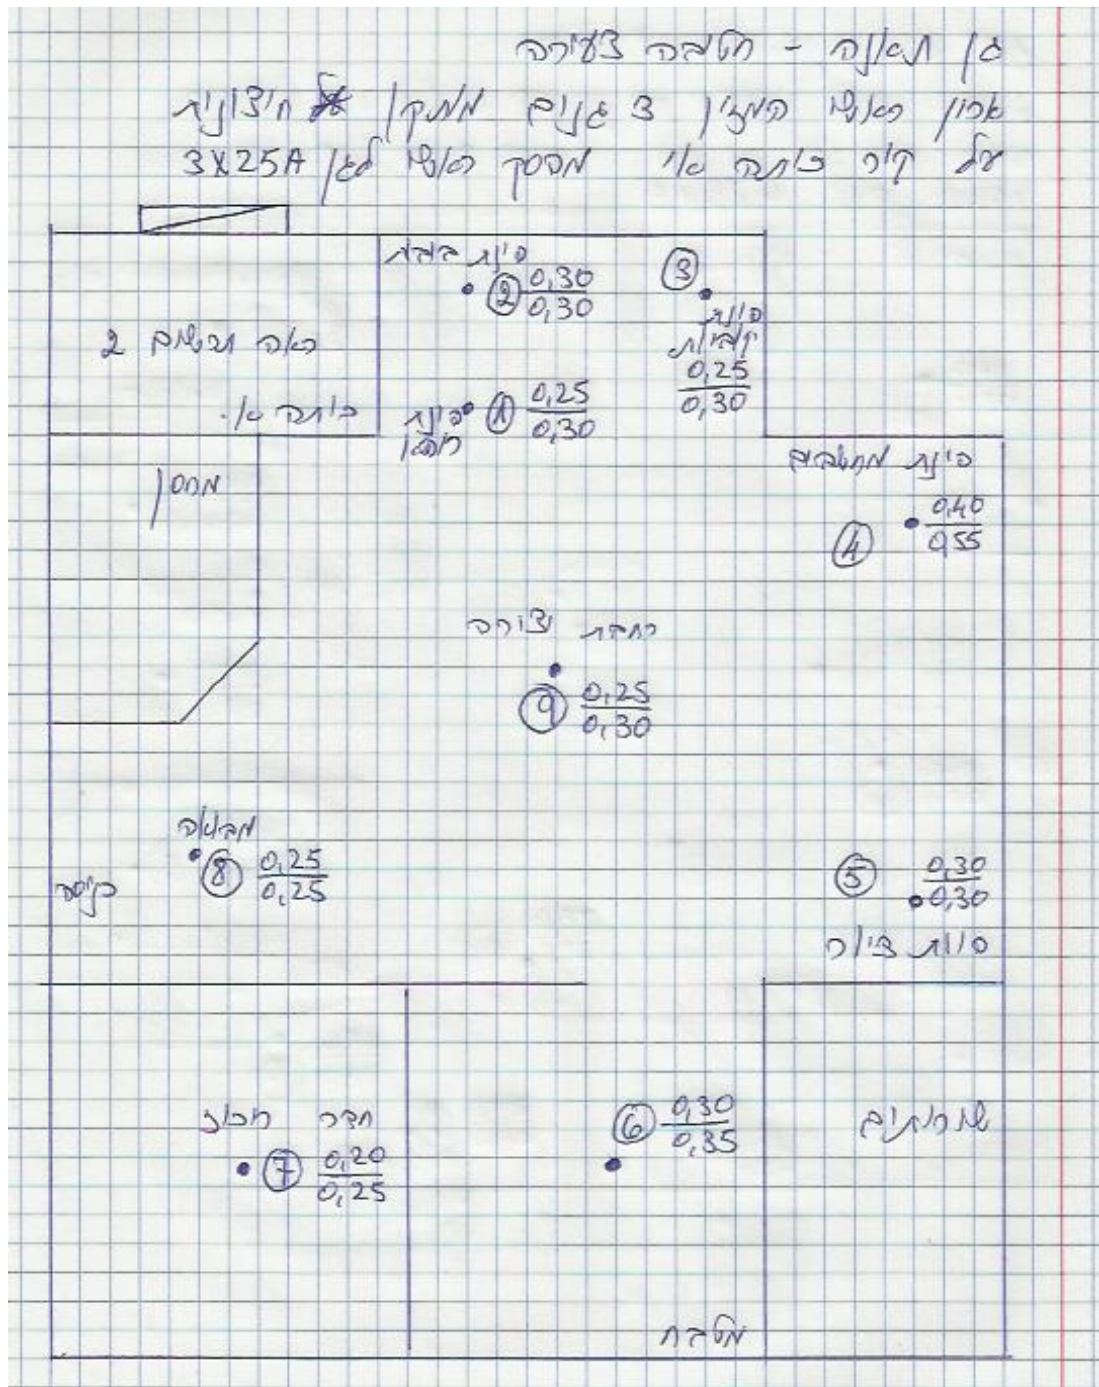 גן תאנה - חטיבה צעירה
ארון ראשי המזין 3 גנים מותקן חיצונית
על קיר כיתה א' מפסק ראשי לגן 3X25A
פינת בובות
② 0,30
0,30
③
פינת
קוביות
0,25
0,30
ראה תרשים 2
כיתה א'.
פינת
① 0,25
0,30
מחסן
פינת מחשבים
④ 0,40
0,55
רחבת יצירה
⑨ 0,25
0,30
מבואה
⑧ 0,25
0,25
כניסה
⑤ 0,30
0,30
פינת ציור
חדר ריכוז
⑦ 0,20
0,25
⑥ 0,30
0,35
שירותים
מטבח